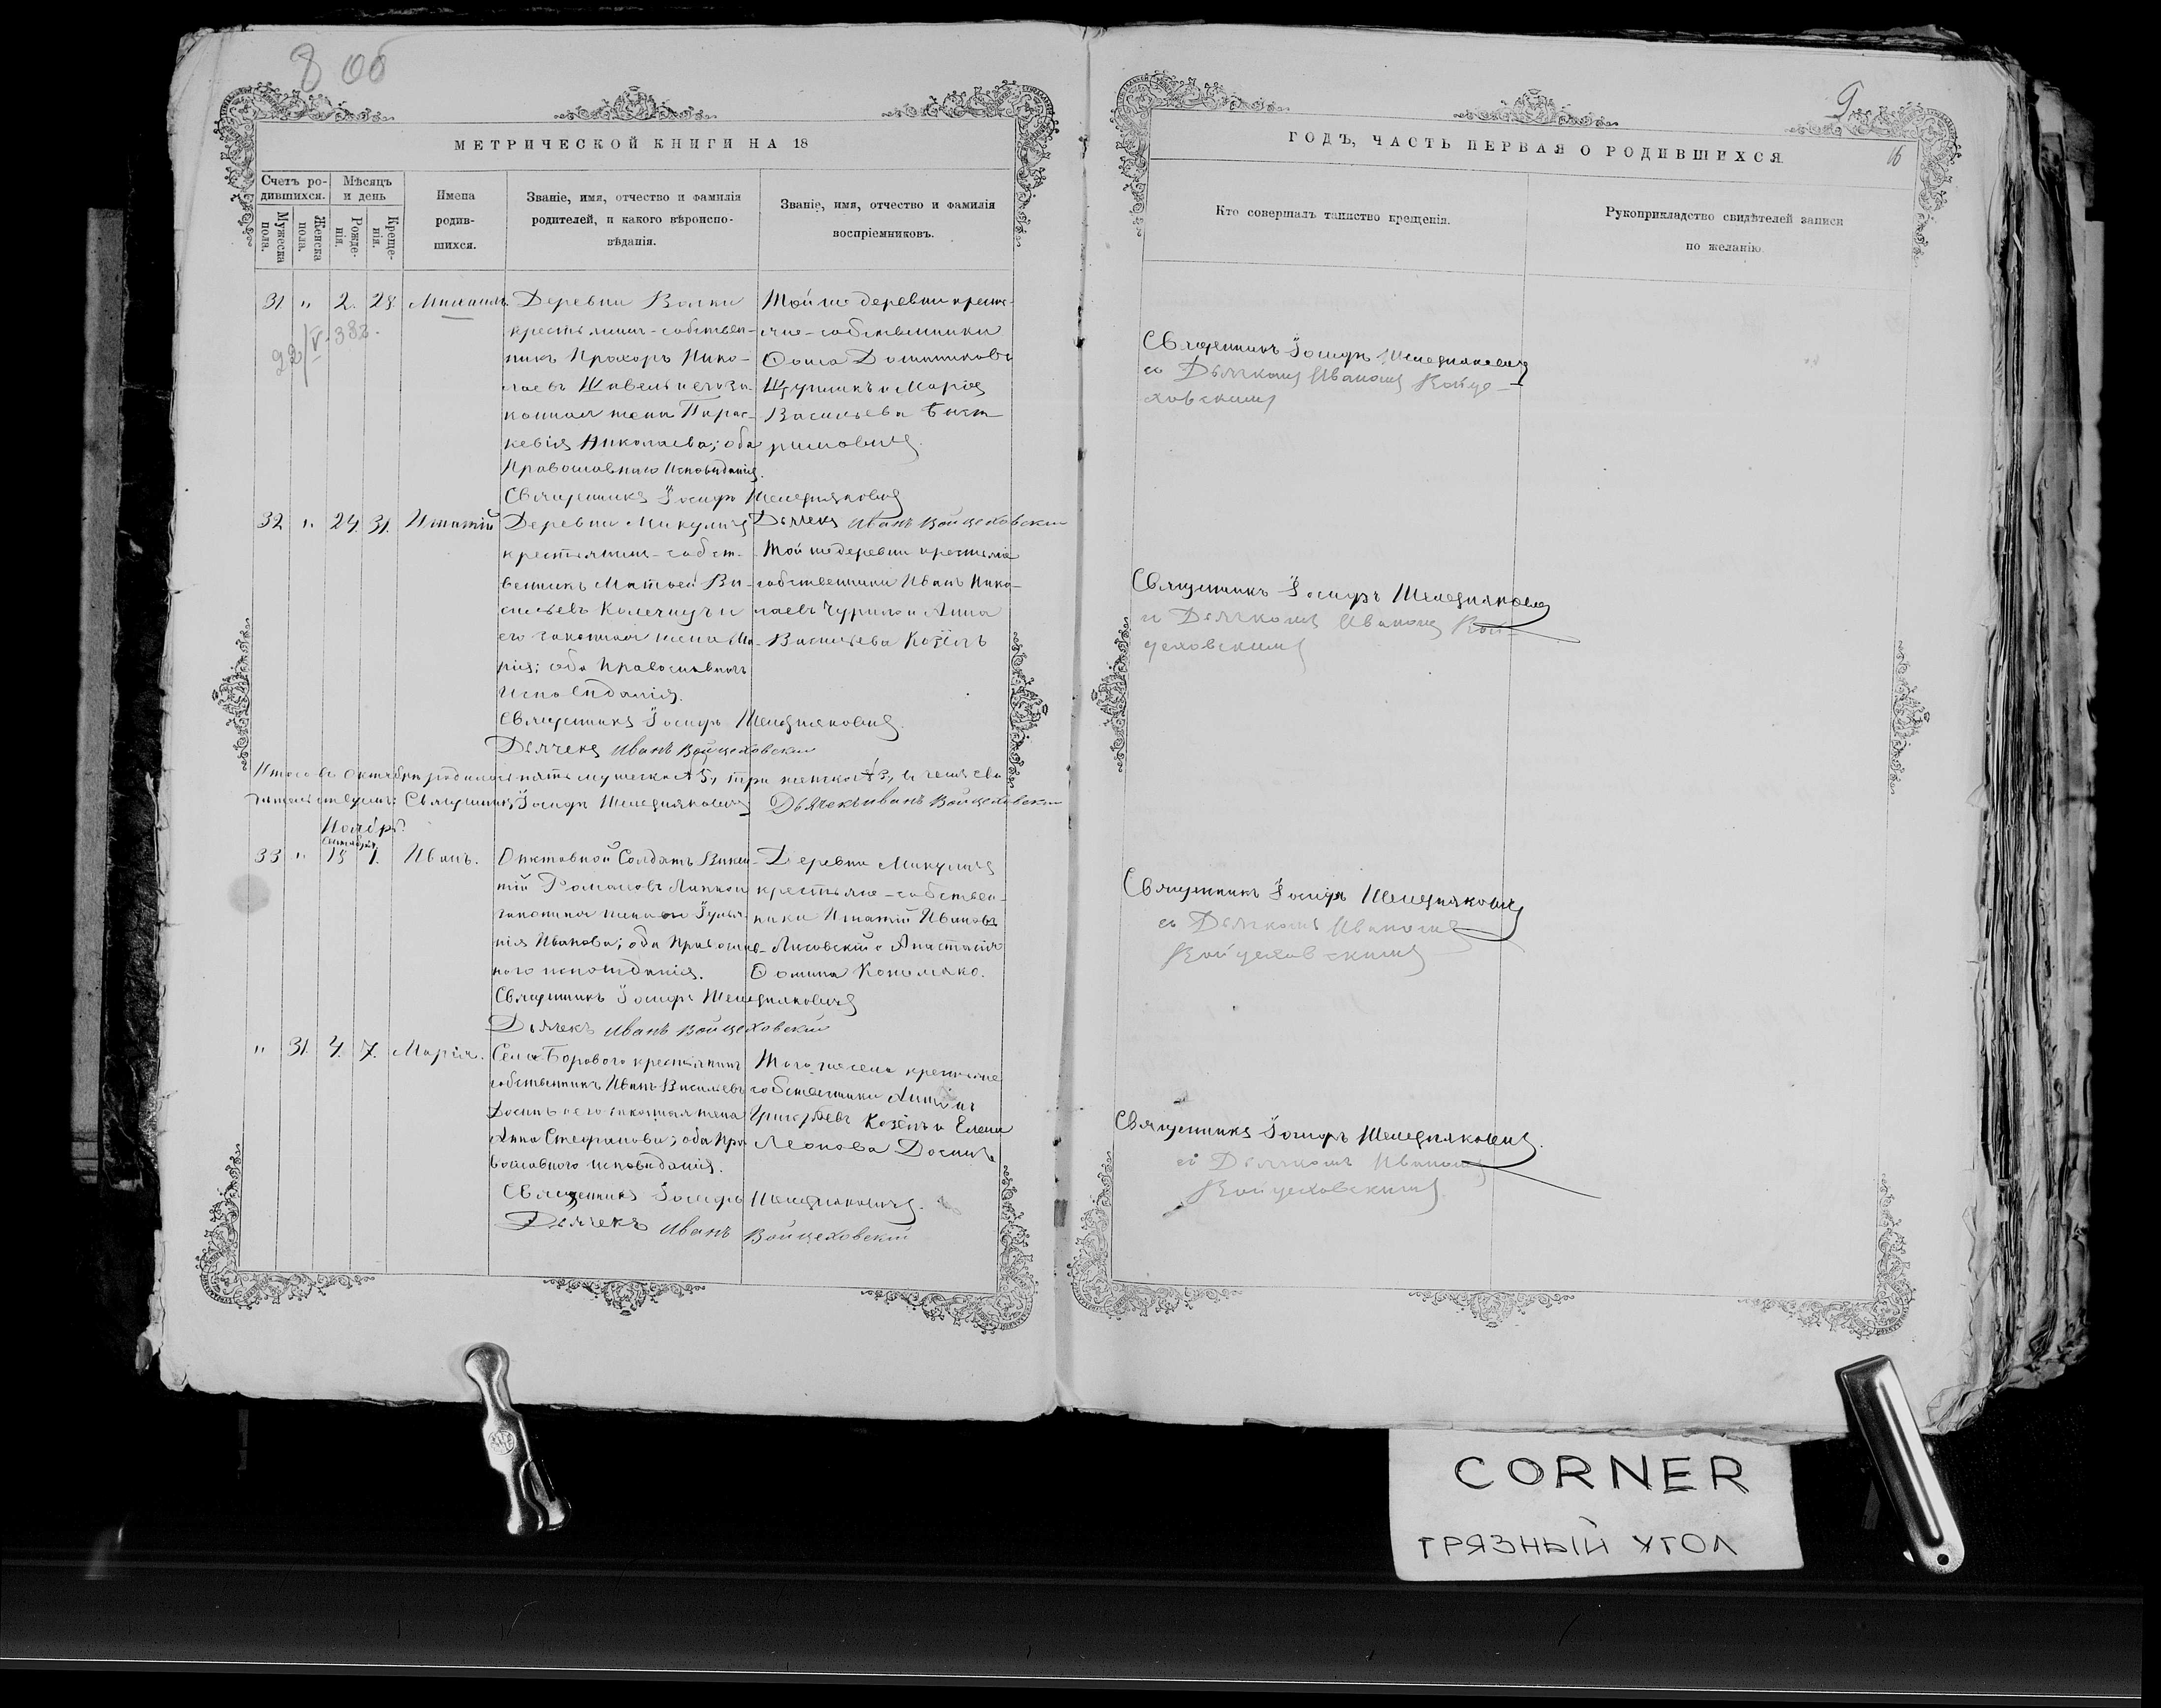 8 об
МЕТРИЧЕСКОЙ КНИГИ НА 18
Счетъ ро-
дившихся.
Мѣсяцъ
и день
Мужеска
пола.
Женска
пола.
Рожде-
нія.
Креще-
нія.
Имена
родив-
шихся.
Званіе, имя, отчество и фамилія
родителей, и какого вѣроиспо-
вѣданія.
Званіе, имя, отчество и фамилія
воспріемниковъ.
31. " 2. 28. Михаилъ
Деревни Волки
крестьянинъ-собствен-
никъ Прохоръ Нико-
лаевъ и его за-
конная жена Парас-
кевія Николаева; оба
Православнаго Исповѣданія.
Священникъ Іосифъ
Той же деревни кресть-
яне-собственники
Фома
и Марія
Васильева
32. " 24. 31. Игнатій
Деревни Микуличъ
крестьянинъ-собст-
венникъ Матѳей Ва-
сильевъ и
его законная жена Ма-
рія; оба Православнаго
Исповѣданія.
Священникъ Іосифъ
Дьячекъ Иванъ Войцеховскій
Дьячекъ Иванъ Войцеховскій
Той же деревни крестьяне
собственники Иванъ Нико-
лаевъ Чурило и Анна
Васильева Козёлъ
Итого въ Октябрѣ родилось пять мужеска 5, три женска 3, въ чемъ сви-
дѣтельствуемъ: Священникъ Іосифъ Дьячекъ Иванъ Войцеховскій
Ноябрь
33 " 15 1. Иванъ.
Отставной Солдатъ Викен-
тій Романовъ
законная жена Іульа-
нія Иванова; оба Православ-
наго исповѣданія.
Священникъ Іосифъ
Дьячекъ Иванъ Войцеховскій
Деревни Микуличъ
крестьяне-собствен-
ники Игнатій Ивановъ
Лисовскій и Анастасія
Фомина
" 31. 4. 7. Марія.
Села Борового крестьянинъ
собственникъ Иванъ Васильевъ
и его законная жена
Анна Стефанова; оба Пра-
вославнаго исповѣданія.
Священникъ Іосифъ
Дьячекъ Иванъ Войцеховскій
Того же села крестьяне
собственники Антонъ
Григорьевъ Козёлъ и Елена
Леонова
9
16
ГОДЪ, ЧАСТЬ ПЕРВАЯ О РОДИВШИХСЯ
Кто совершалъ таинство крещенія.
Рукоприкладство свидѣтелей записи
по желанію
Священникъ Іосифъ
съ Дьячкомъ Иваномъ Войце-
ховскимъ
Священникъ Іосифъ
съ Дьячкомъ Иваномъ Вой-
цеховскимъ
Священникъ Іосифъ
съ Дьячкомъ Иваномъ
Войцеховскимъ
Священникъ Іосифъ
съ Дьячкомъ Иваномъ
Войцеховскимъ
CORNER
ГРЯЗНЫЙ УГОЛ